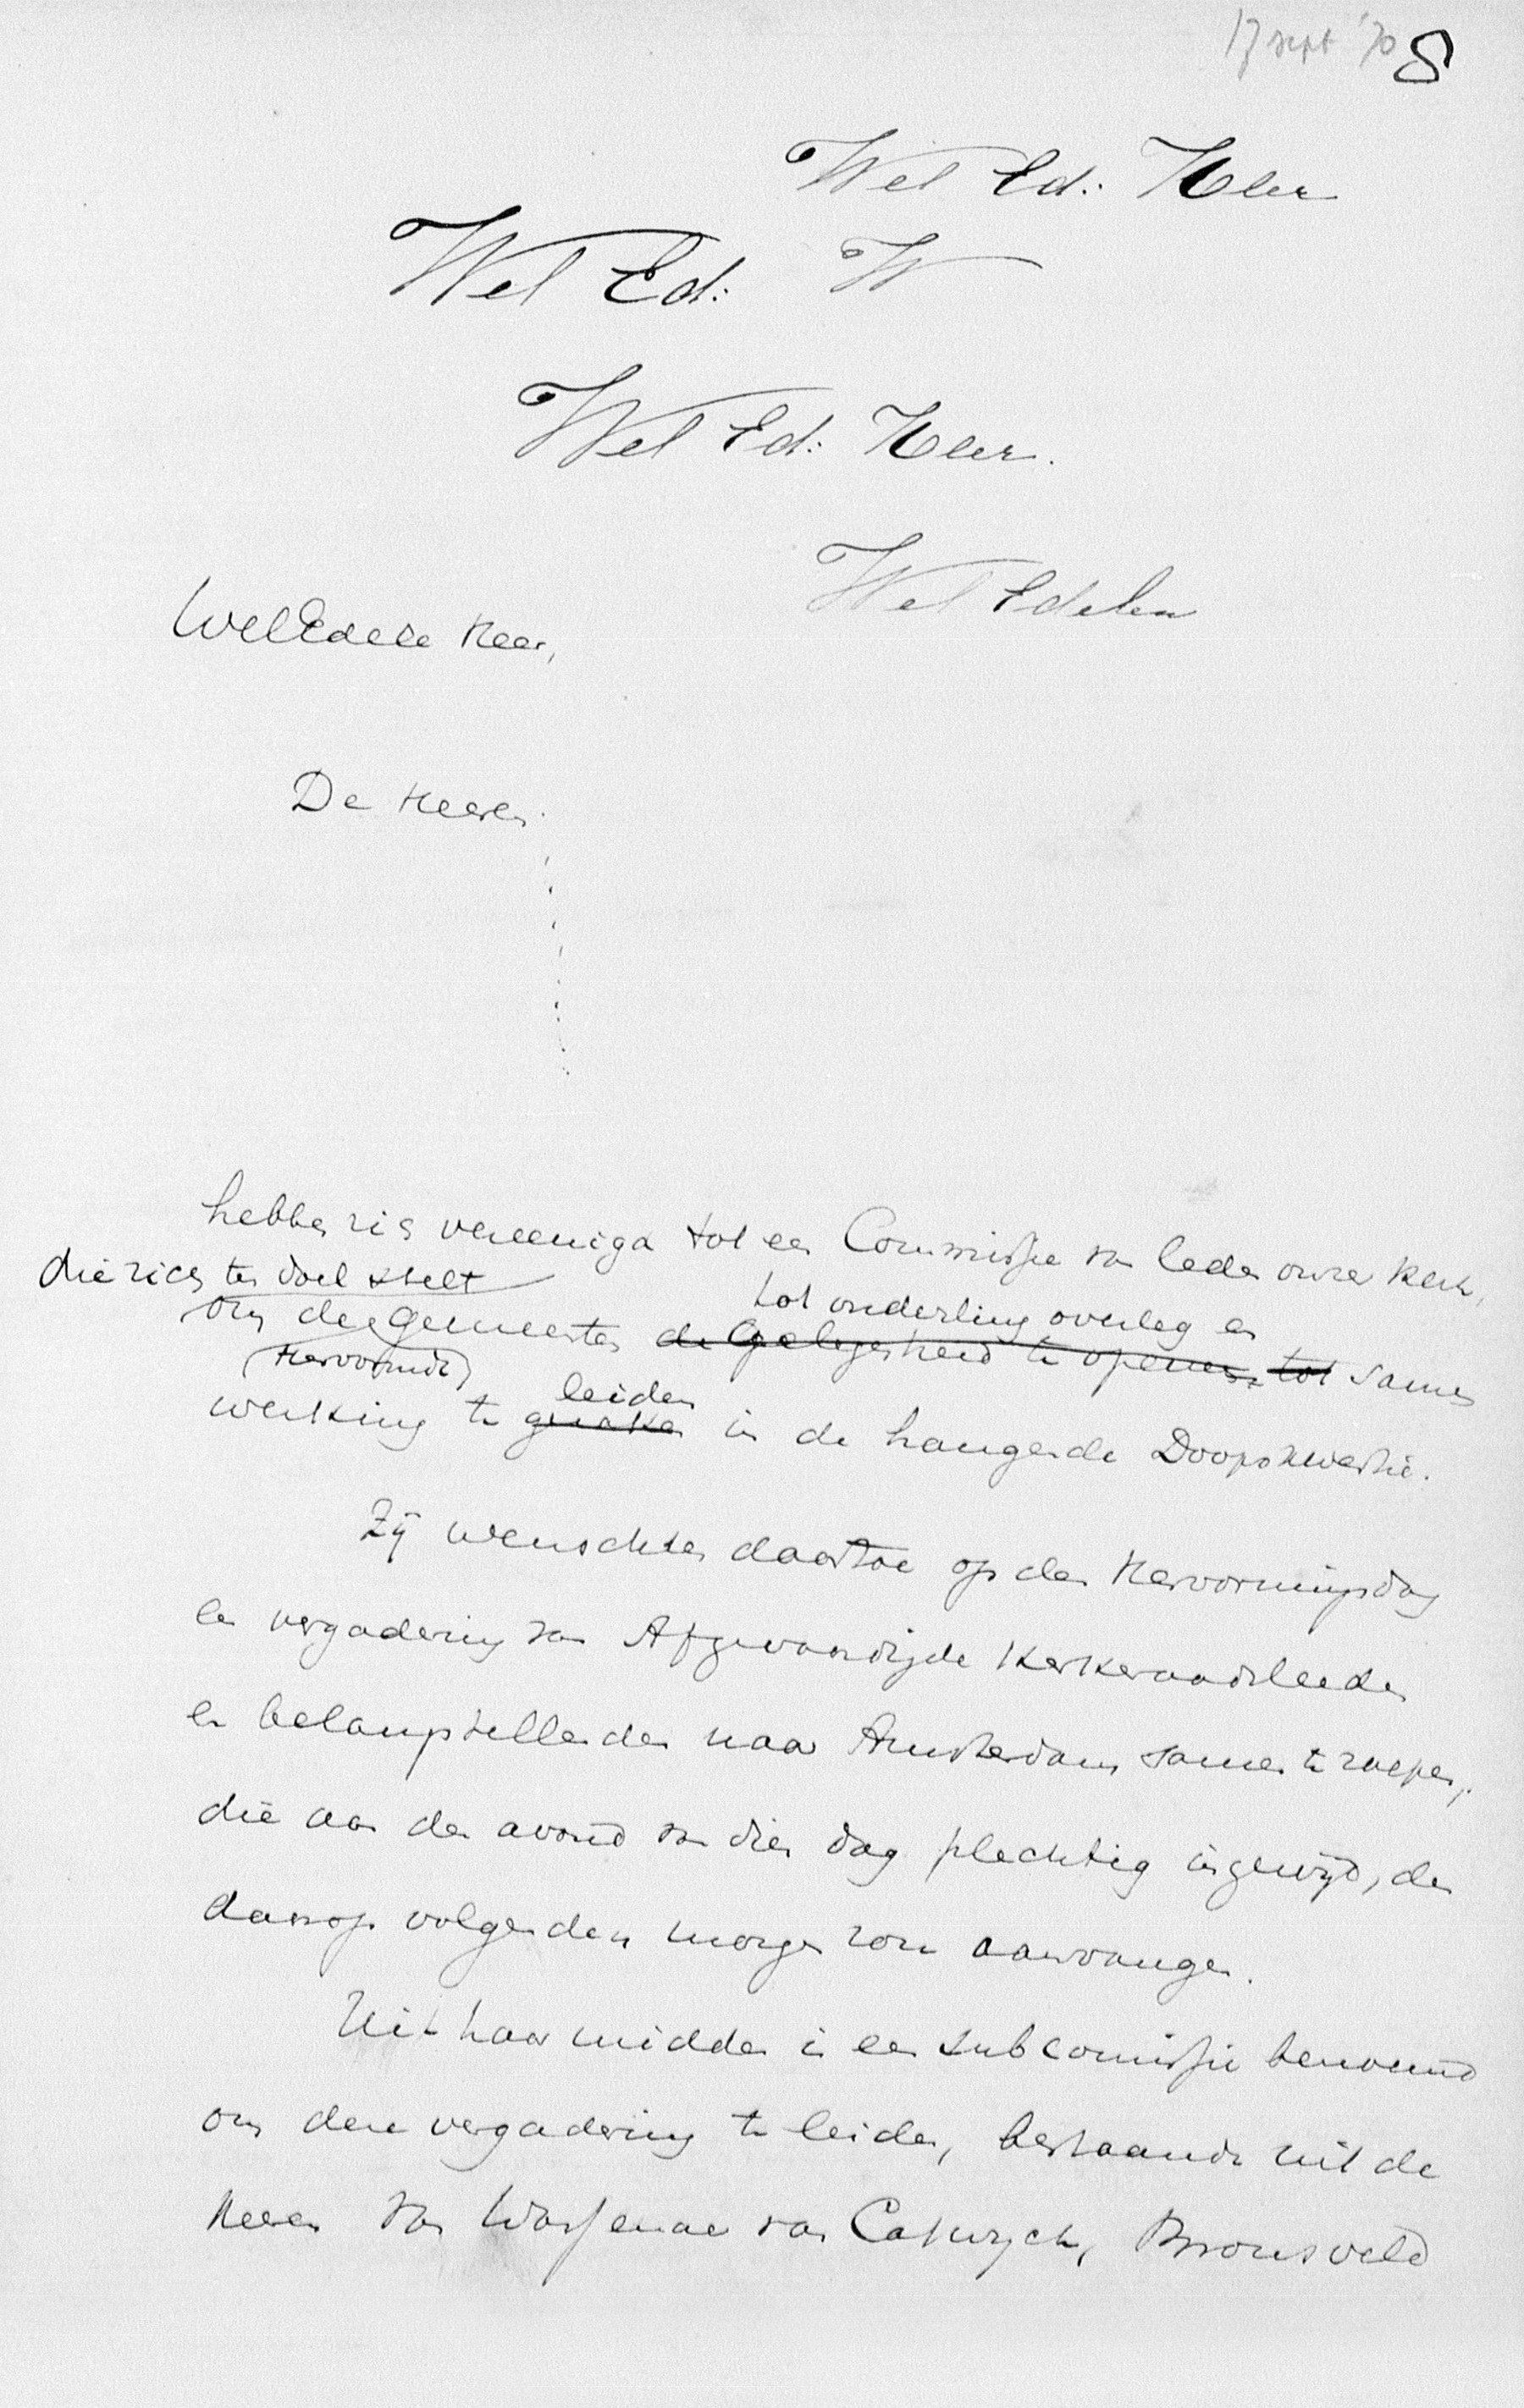 17 sept '70 8
Wel Ed: Heer
Wel Ed: W
Wel Ed: Heer.
Wel Edelen
WelEdele Heer,
De Heeren
hebben zich vereenigd tot een Commissie van leden onzer Kerk,
die zich ten doel stelt
tot onderling overleg en
om de Gemeenten de gelegenheid te openen tot samen
(Hervormde)
leiden
werking te geraken in de hangende Doopskwestie.
Zij wenschten daartoe op den Hervormingsdag
een vergadering van Afgevaardigde Kerkeraadsleden
en belangstellenden naar Amsterdam samen te roepen,
die aan den avond van dien dag plechtig ingewijd, den
daarop volgenden morgen zou aanvangen.
Uit haar midden is een subcommissie benoemd
om deze vergadering te leiden, bestaande uit de
Heeren van Wassenaer van Catwijck, Bronsveld